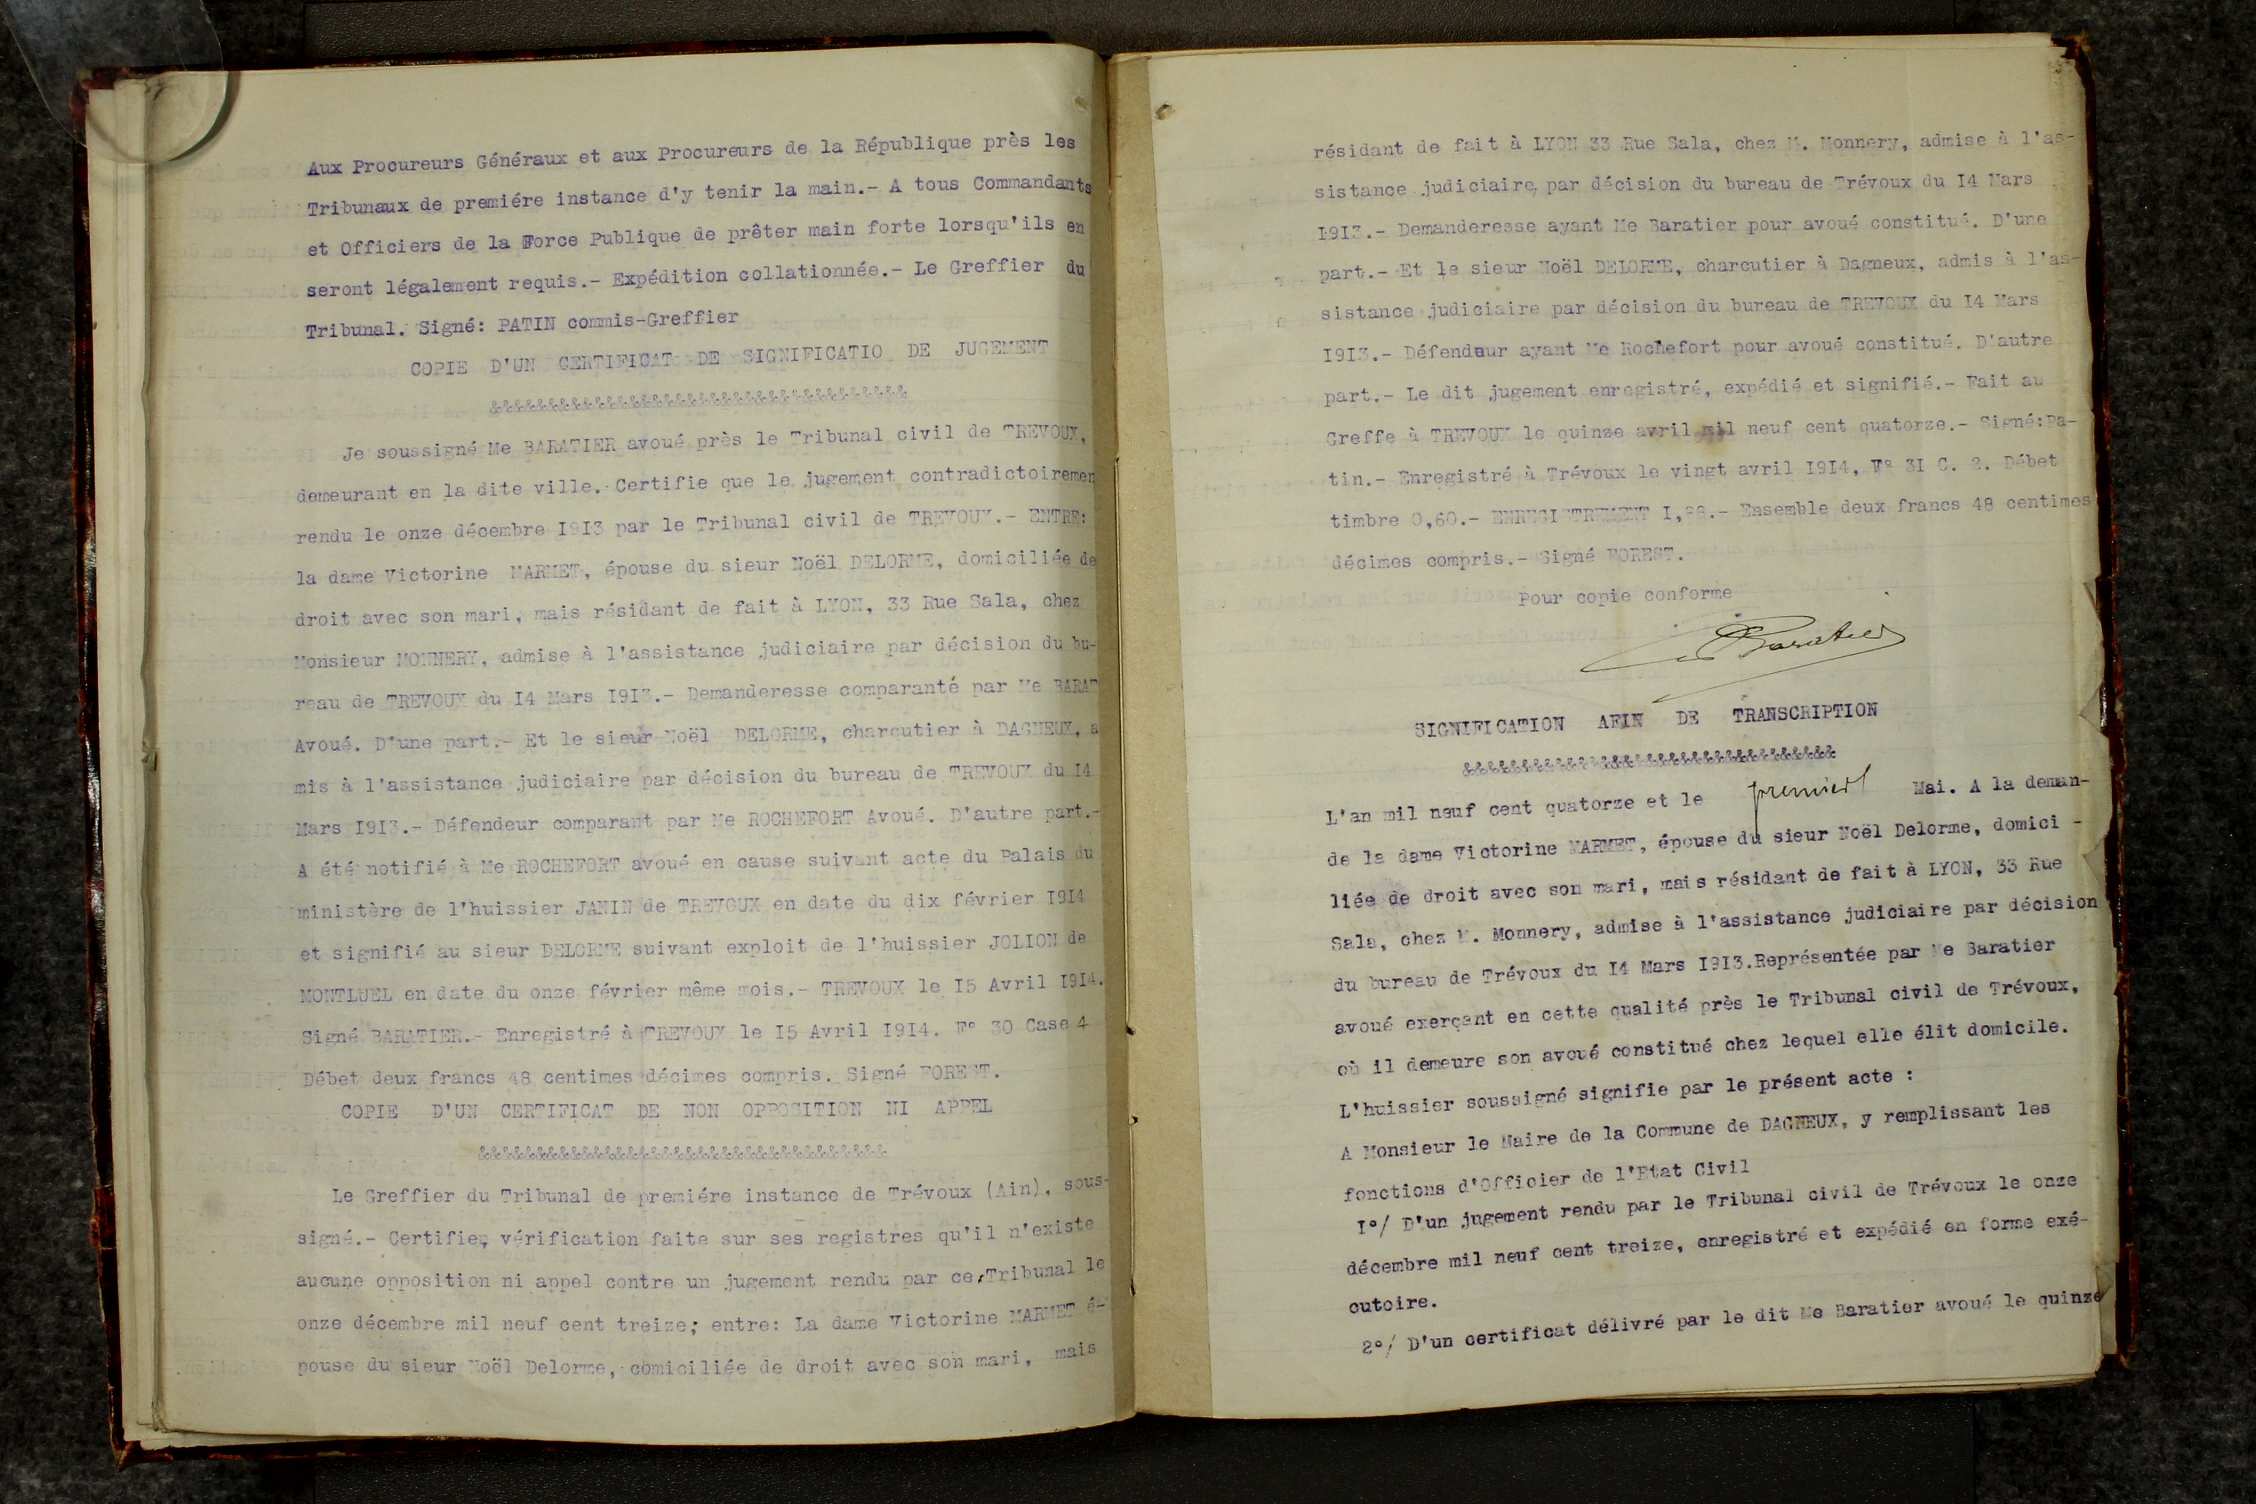 Aux Procureurs Généraux et aux Procureurs de la République près les
Tribunaux de premiére instance d'y tenir la main.- A tous Commandants
et Officiers de la Force Publique de prêter main forte lorsqu'ils en
seront légalement requis.- Expédition collationnée.- Le Greffier du
Tribunal. Signé: PATIN commis-Greffier
COPIE D'UN CERTIFICAT DE SIGNIFICATIO DE JUGEMENT
&&&&&&&&&&&&&&&&&&&&&&&&&&&&&&&&&&&
Je soussigné Me BARATIER avoué près le Tribunal civil de TREVOUX,
demeurant en la dite ville. Certifie que le jugement contradictoiremen
rendu le onze décembre I9I3 par le Tribunal civil de TREVOUX.- ENTRE:
la dame Victorine MARMET, épouse du sieur Noël DELORME, domiciliée de
droit avec son mari, mais résidant de fait à LYON, 33 Rue Sala, chez
Monsieur MONNERY, admise à l'assistance judiciaire par décision du bu-
reau de TREVOUX du I4 Mars I9I3.- Demanderesse comparanté par Me BARAT
Avoué. D'une part.- Et le sieur Noël DELORME, charcutier à DAGNEUX, a
mis à l'assistance judiciaire par décision du bureau de TREVOUX du I4
Mars I9I3.- Défendeur comparant par Me ROCHEFORT Avoué. D'autre part.-
A été notifié à Me ROCHEFORT avoué en cause suivant acte du Palais du
ministère de l'huissier JANIN de TREVOUX en date du dix février I9I4
et signifié au sieur DELORME suivant exploit de l'huissier JOLION de
MONTLUEL en date du onze février même mois.- TREVOUX le I5 Avril I9I4.
Signé BARATIER.- Enregistré à TREVOUX le I5 Avril I9I4. F° 30 Case 4
Débet deux francs 48 centimes décimes compris. Signé FOREST.
COPIE D'UN CERTIFICAT DE NON OPPOSITION NI APPEL
&&&&&&&&&&&&&&&&&&&&&&&&&&&&&&&&&&&
Le Greffier du Tribunal de premiére instance de Trévoux (Ain), sous-
signé.- Certifie, vérification faite sur ses registres qu'il n'existe
aucune opposition ni appel contre un jugement rendu par ce Tribunal le
onze décembre mil neuf cent treize; entre: La dame Victorine MARMET é-
pouse du sieur Noël Delorme, comiciliée de droit avec son mari, mais
résidant de fait à LYON 33 Rue Sala, chez M. Monnery, admise à l'as-
sistance judiciaire par décision du bureau de Trévoux du I4 Mars
I9I3.- Demanderesse ayant Me Baratier pour avoué constitué. D'une
part.- Et le sieur Noël DELORME, charcutier à Dagneux, admis à l'as-
sistance judiciaire par décision du bureau de TREVOUX du I4 Mars
I9I3.- Défendeur ayant Me Rochefort pour avoué constitué. D'autre
part.- Le dit jugement enregistré, expédié et signifié.- Fait au
Greffe à TREVOUX le quinze avril mil neuf cent quatorze.- Signé:Pa-
tin.- Enregistré à Trévoux le vingt avril I9I4, F° 3I C. 2. Débet
timbre 0,60.- ENREGISTREMENT I,88.- Ensemble deux francs 48 centimes
décimes compris.- Signé FOREST.
Pour copie conforme
Baratier
SIGNIFICATION AFIN DE TRANSCRIPTION
&&&&&&&&&&&&&&&&&&&&&&&&&&&&&&&&
L'an mil neuf cent quatorze et le premier Mai. A la deman-
de la dame Victorine MARMET, épouse du sieur Noël Delorme, domici -
liée de droit avec son mari, mais résidant de fait à LYON, 33 Rue
Sala, chez M. Monnery, admise à l'assistance judiciaire par décision
du bureau de Trévoux du I4 Mars I9I3.Représentée par Me Baratier
avoué exerçant en cette qualité près le Tribunal civil de Trévoux,
où il demeure son avoué constitué chez lequel elle élit domicile.
L'huissier soussigné signifie par le présent acte :
A Monsieur le Maire de la Commune de DAGNEUX, y remplissant les
fonctions d'Officier de l'Etat Civil
I°/ D'un jugement rendu par le Tribunal civil de Trévoux le onze
décembre mil neuf cent treize, enregistré et expédié en forme exé-
cutoire.
2°/ D'un certificat délivré par le dit Me Baratier avoué le quinze